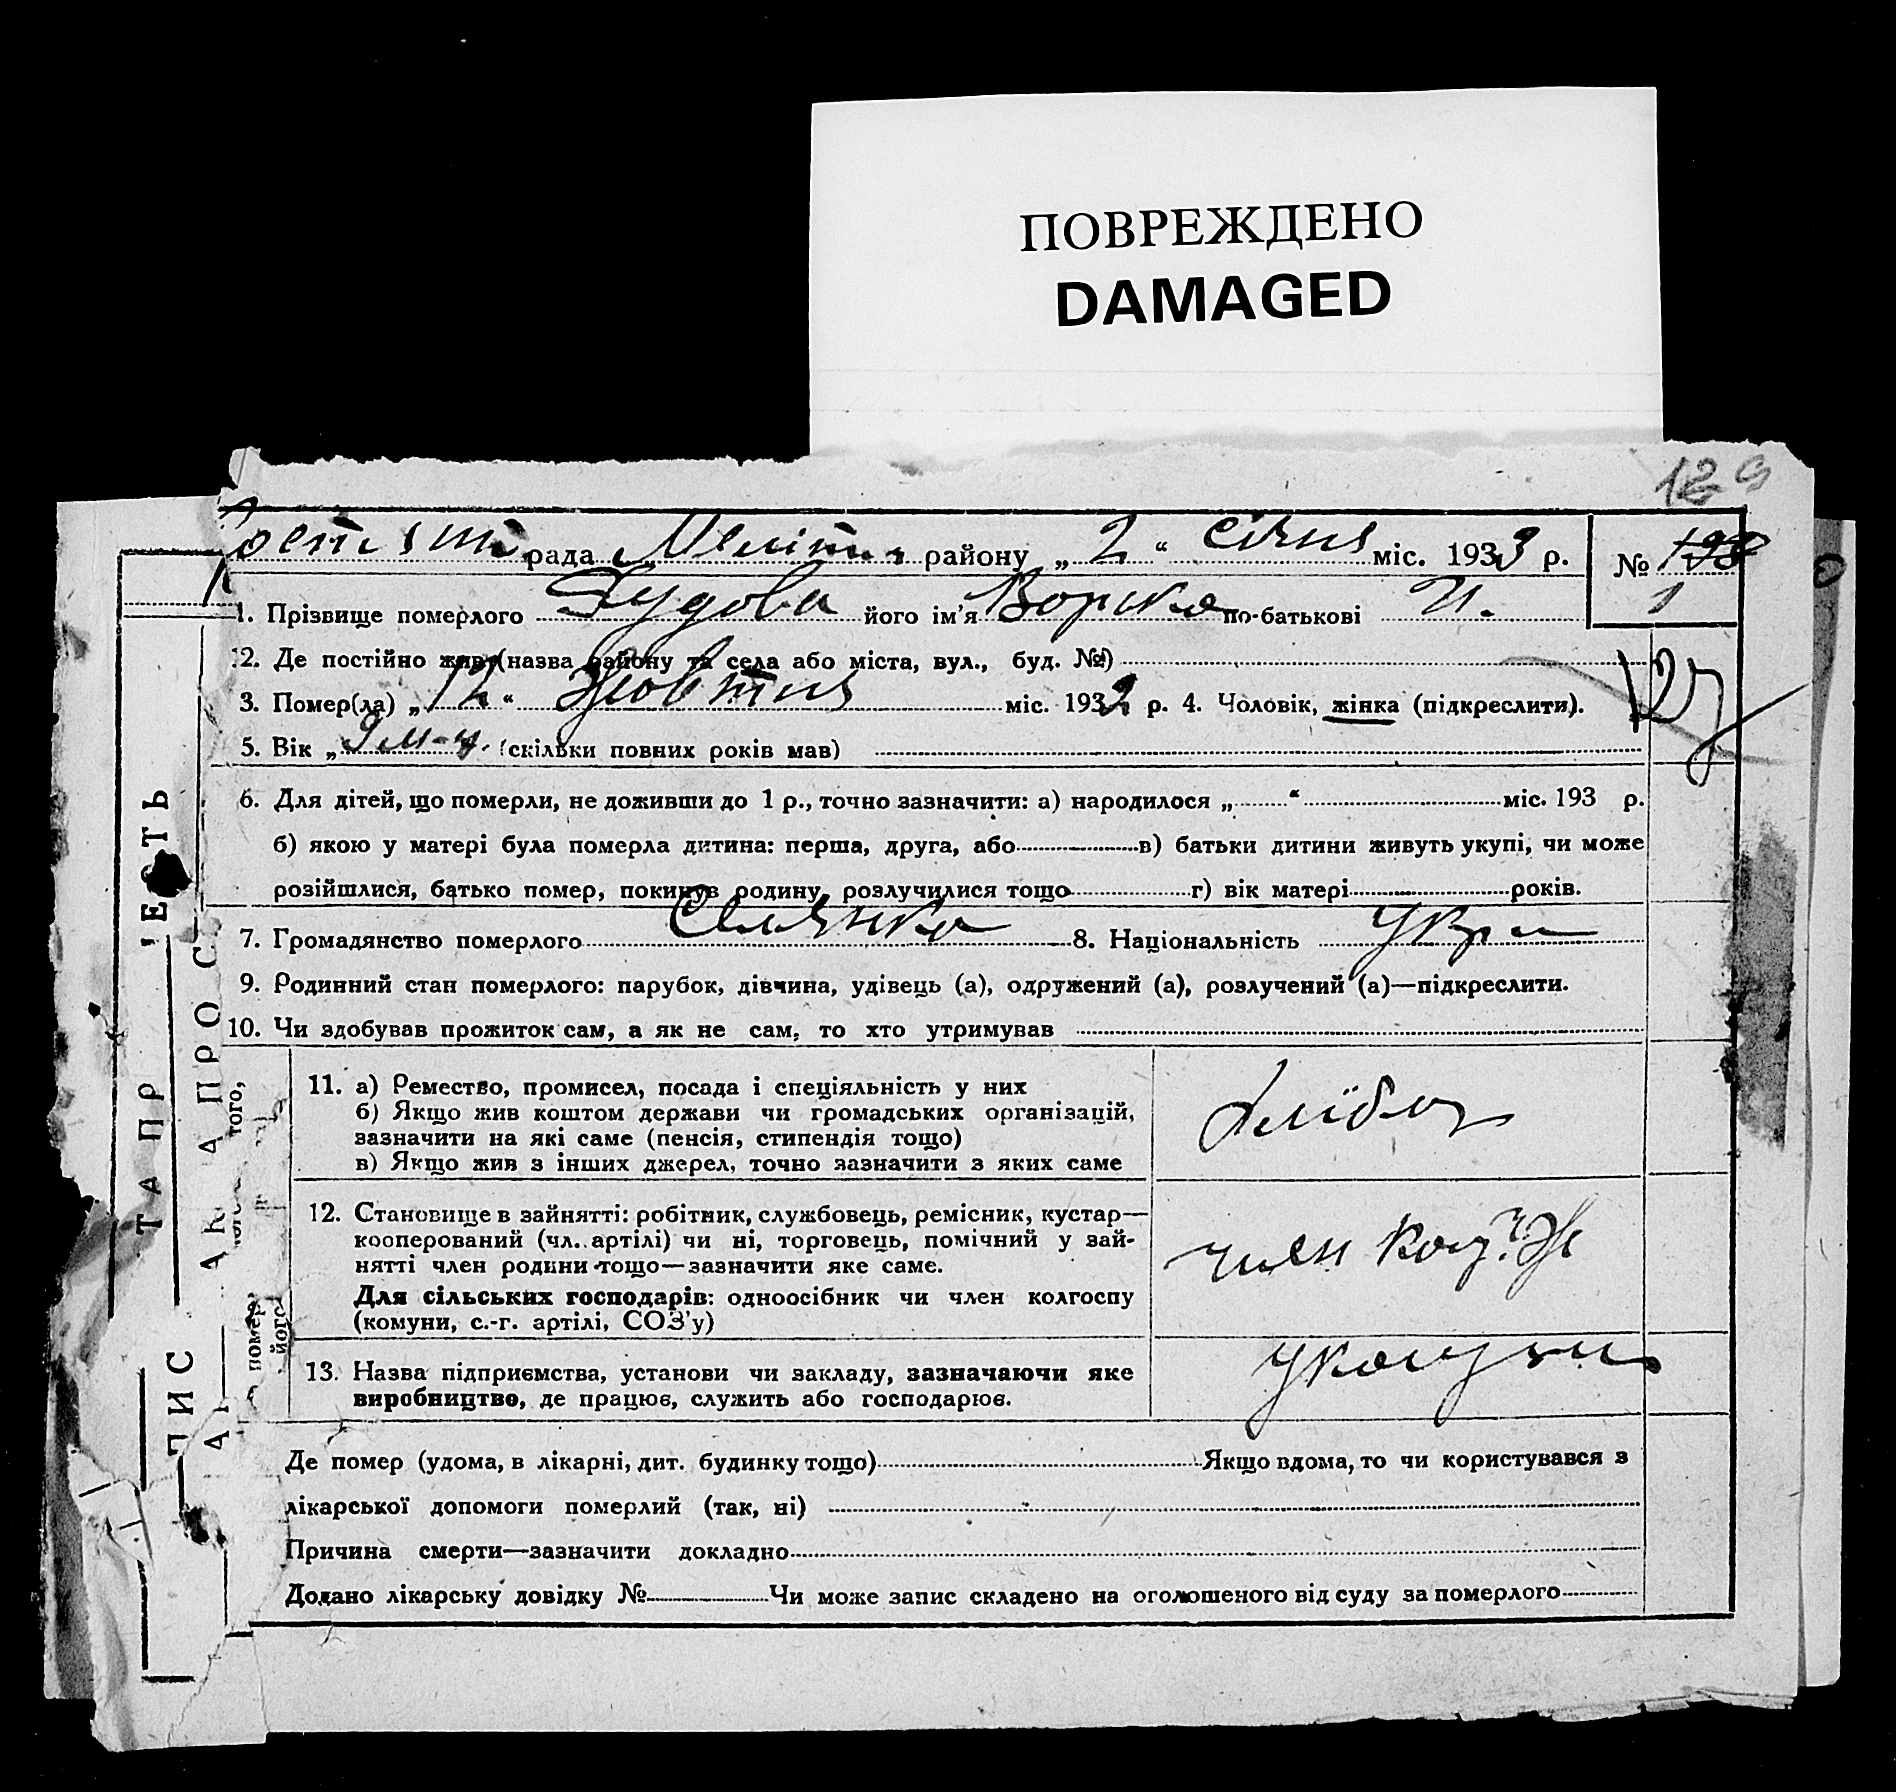 ПОВРЕЖДЕНО
DAMAGED
129
рада Меліт району „2“ січня міс. 1933 р. № 198
1
1. Прізвище померлого його ім'я по-батькові И.
2. Де постійно жив (назва району та села або міста, вул., буд. №)
3. Помер(ла) „12“ Жовтня міс. 1932 р. 4. Чоловік, жінка (підкреслити).
5. Вік „9 м-ц. (скільки повних років мав)
6. Для дітей, що померли, не доживши до 1 р., точно зазначити: а) народилося „ “ міс. 193 р.
б) якою у матері була померла дитина: перша, друга, або в) батьки дитини живуть укупі, чи може
розійшлися, батько помер, покинув родину, розлучилися тощо г) вік матері років.
7. Громадянство померлого Селянка 8. Національність Укр
9. Родинний стан померлого: парубок, дівчина, удівець (а), одружений (а), розлучений (а)—підкреслити.
10. Чи здобував прожиток сам, а як не сам, то хто утримував
11. а) Ремество, промисел, посада і спеціяльність у них
б) Якщо жив коштом держави чи громадських організацій,
зазначити на які саме (пенсія, стипендія тощо)
в) Якщо жив з інших джерел, точно зазначити з яких саме
12. Становище в зайнятті: робітник, службовець, ремісник, кустар—
кооперований (чл. артілі) чи ні, торговець, помічний у зай-
нятті член родини тощо—зазначити яке саме.
Для сільських господарів: одноосібник чи член колгоспу
(комуни, с.-г. артілі, СОЗ'у)
член
13. Назва підприємства, установи чи закладу, зазначаючи яке
виробництво, де працює, служить або господарює.
Де помер (удома, в лікарні, дит. будинку тощо) Якщо вдома, то чи користувався з
лікарської допомоги померлий (так, ні)
Причина смерти—зазначити докладно
Додано лікарську довідку № Чи може запис складено на оголошеного від суду за померлого